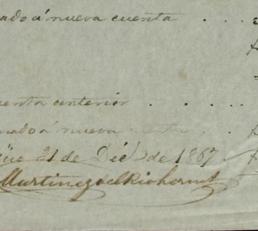 ado á nueva cuenta
uenta anterior
nado á nueva
güe 21 de Dic de 1867
Martinez del Rio hermos